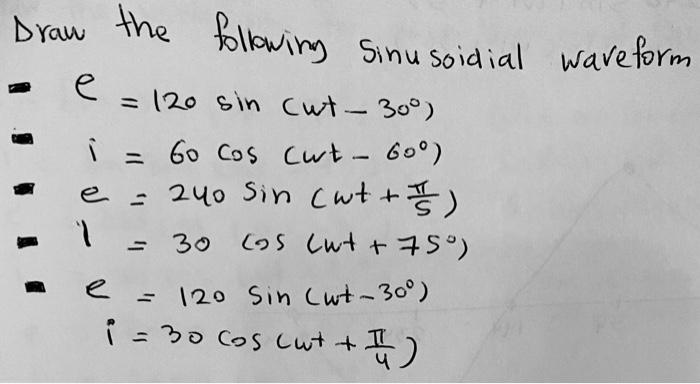 Draw the following Sinusoidial waveform
- e = 120 sin (wt - 30°)
- i = 60 cos (wt - 60°)
- e = 240 Sin (wt + π/5)
- i = 30 cos (wt + 75°)
- e = 120 Sin (wt - 30°)
i = 30 cos (wt + π/4)